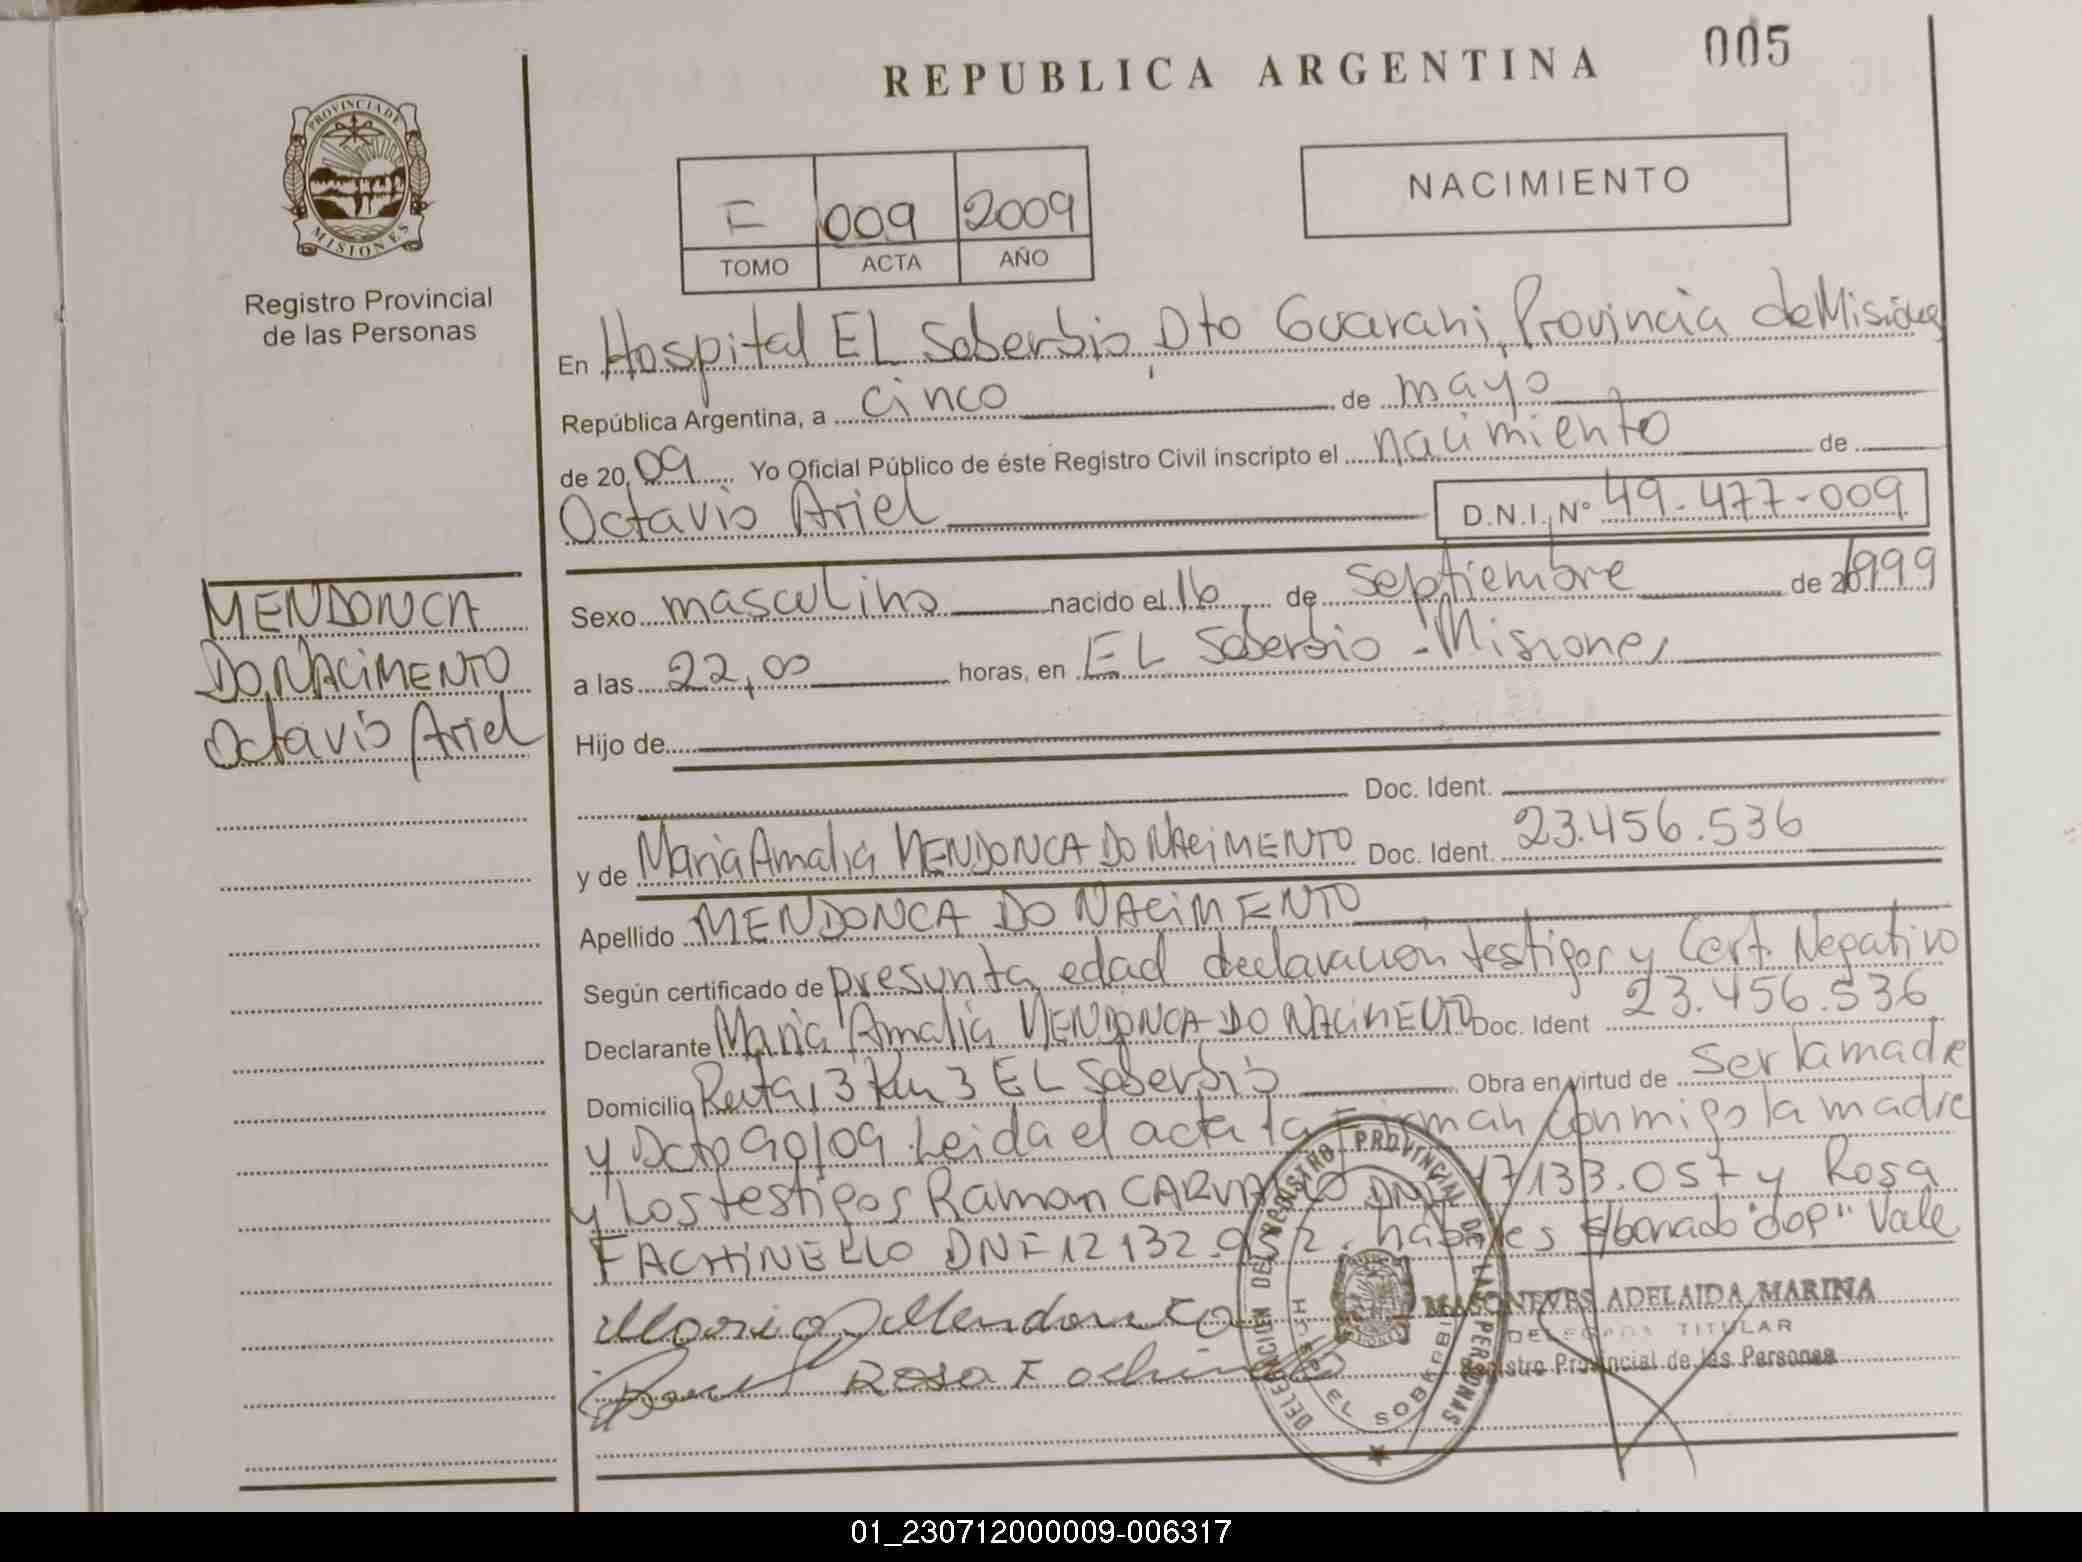 REPUBLICA ARGENTINA 005
PROVINCIA DE MISIONES
Registro Provincial
de las Personas
F 009 2009
TOMO ACTA AÑO
NACIMIENTO
En Hospital EL Soberbio, Dto Guarani, Provincia de Misiones
República Argentina, a cinco de mayo
de 2009 Yo Oficial Público de éste Registro Civil inscripto el nacimiento de
Octavio Ariel D.N.I. Nº 49-477-009
MENDONCA
DO NACIMENTO
Octavio Ariel
Sexo masculino nacido el 16 de septiembre de 1999
a las 22,00 horas, en EL Soberbio - Misiones
Hijo de
Doc. Ident.
y de Maria Amalia MENDONCA DO NACIMENTO Doc. Ident. 23.456.536
Apellido MENDONCA DO NACIMENTO
Según certificado de presunta edad declaracion testigos y Cert. Negativo
Declarante Maria Amalia MENDONCA DO NACIMENTO Doc. Ident 23.456.536
Domicilio Ruta 13 Km 3 EL Soberbio Obra en virtud de ser la madre
y Dcto 90/09. Leida el acta la Firman conmigo la madre
y Los testigos Ramon CARVALHO DNI 17133.057 y Rosa
FACHINELLO DNI 12132.952. habiles s/bonado "dop" Vale
Maria Mendonca
Rosa Fachinello
DELEGACION DEL REGISTRO PROVINCIAL DE LAS PERSONAS
EL SOBERBIO
MASONEVES ADELAIDA MARINA
DELEGADA TITULAR
Registro Provincial de las Personas
01_230712000009-006317